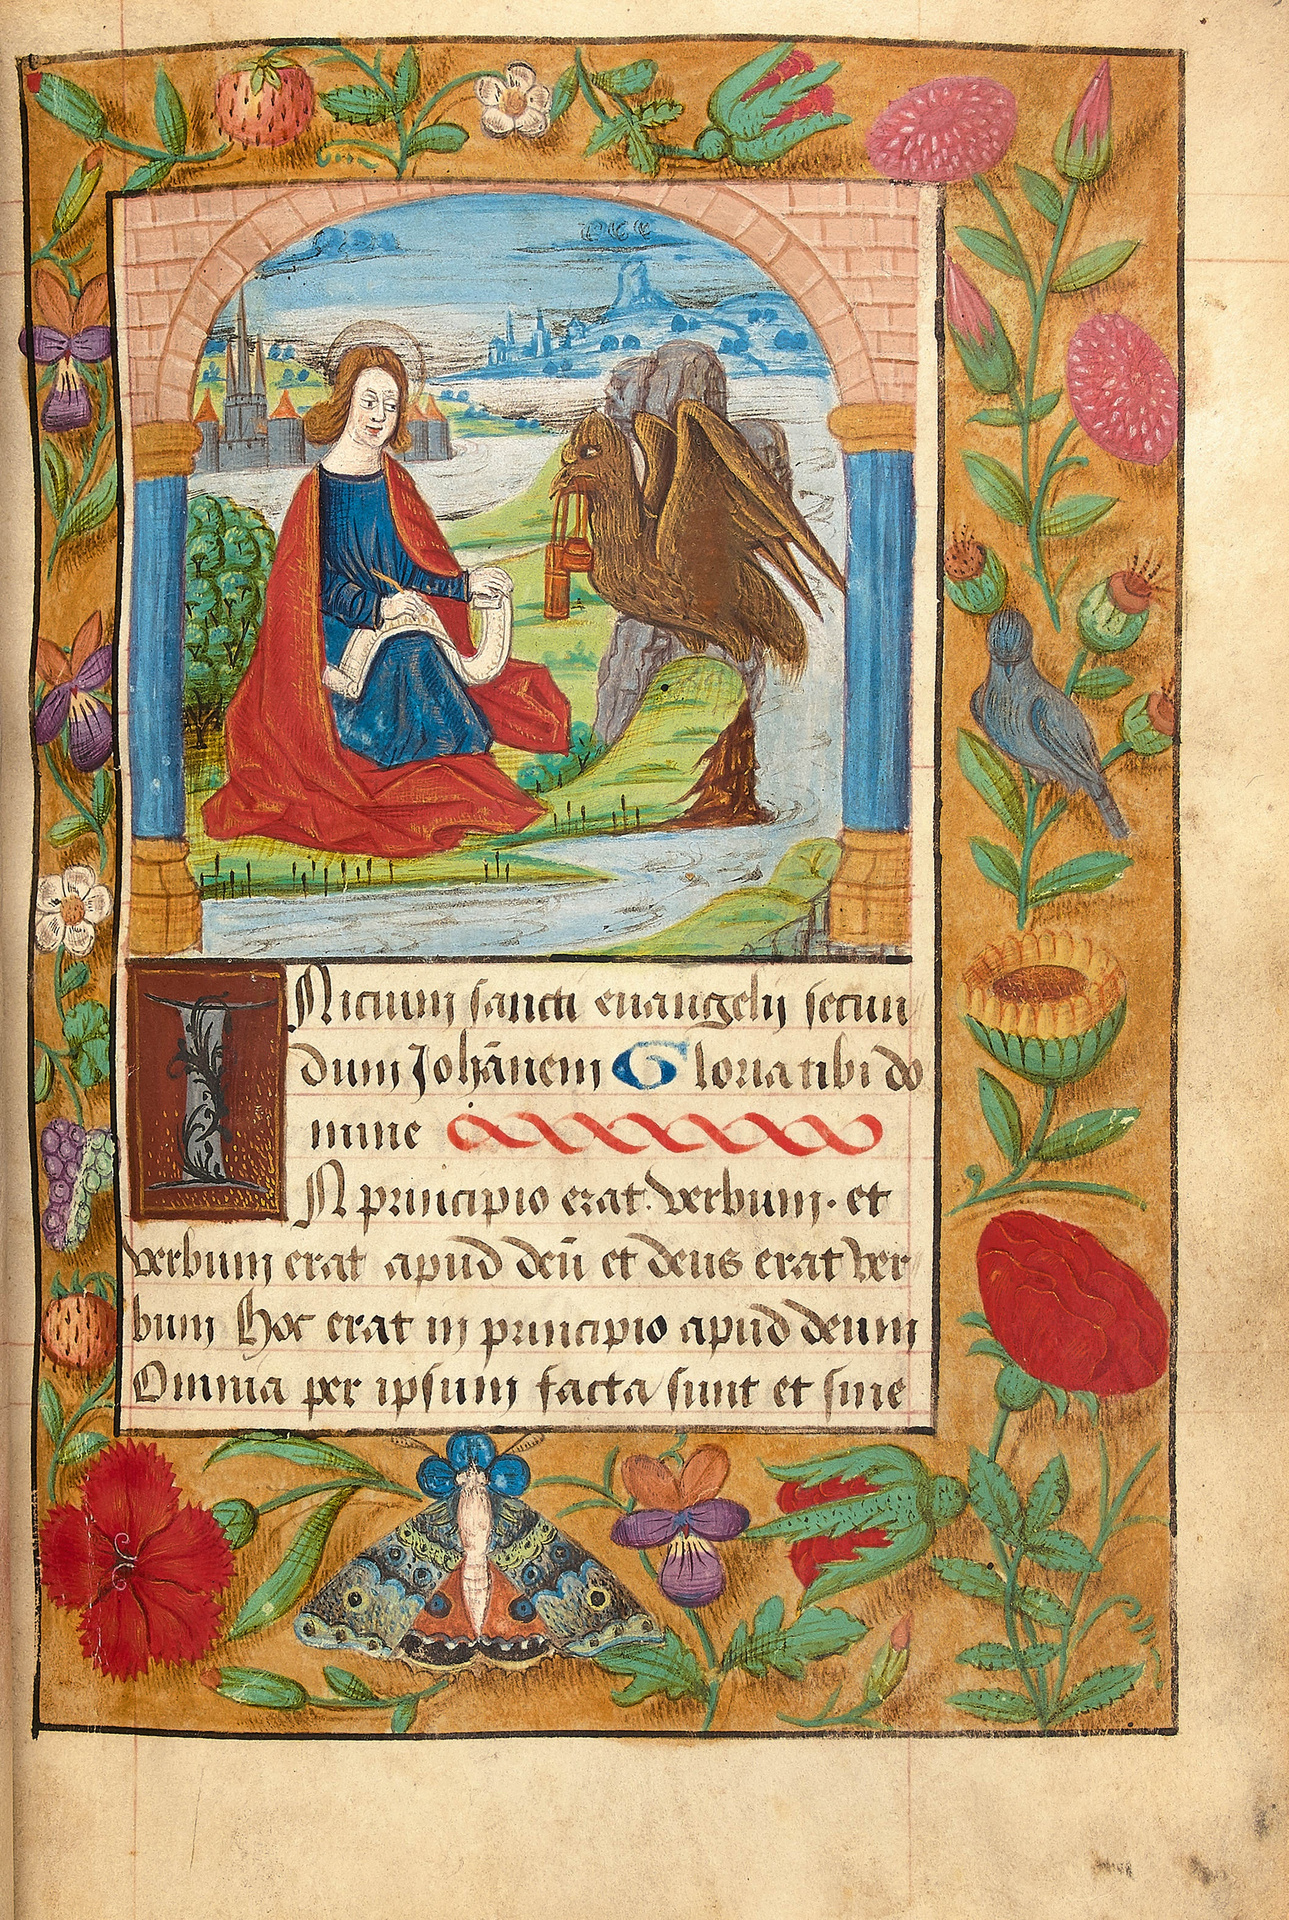 INicium sancti euangelij secun
dum Johānem Gloria tibi do
mine
IN principio erat. verbum. et
verbum erat apud deū et deus erat ver
bum Hoc erat in principio apud deum
Omnia per ipsum facta sunt et sine